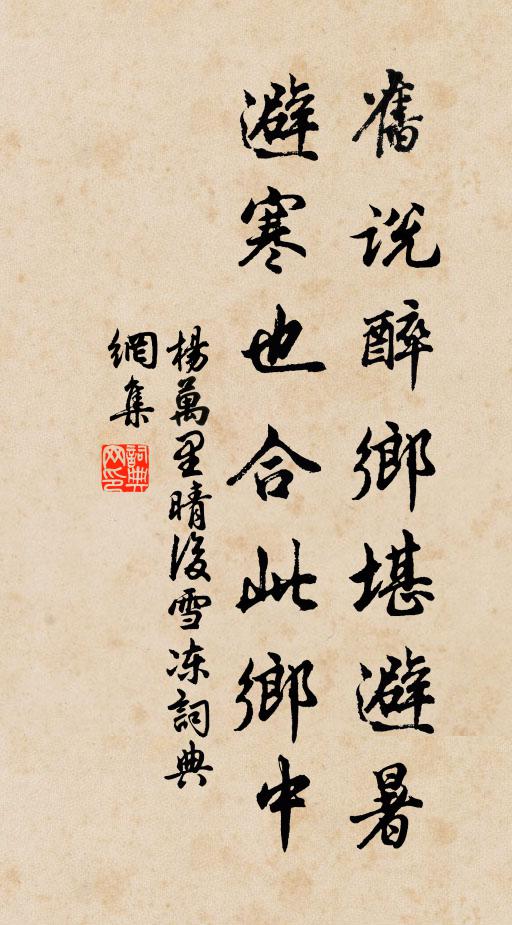 舊說醉鄉堪避暑
避寒也合此鄉中
楊萬里晴後雪凍詞典
網集
詞典网印